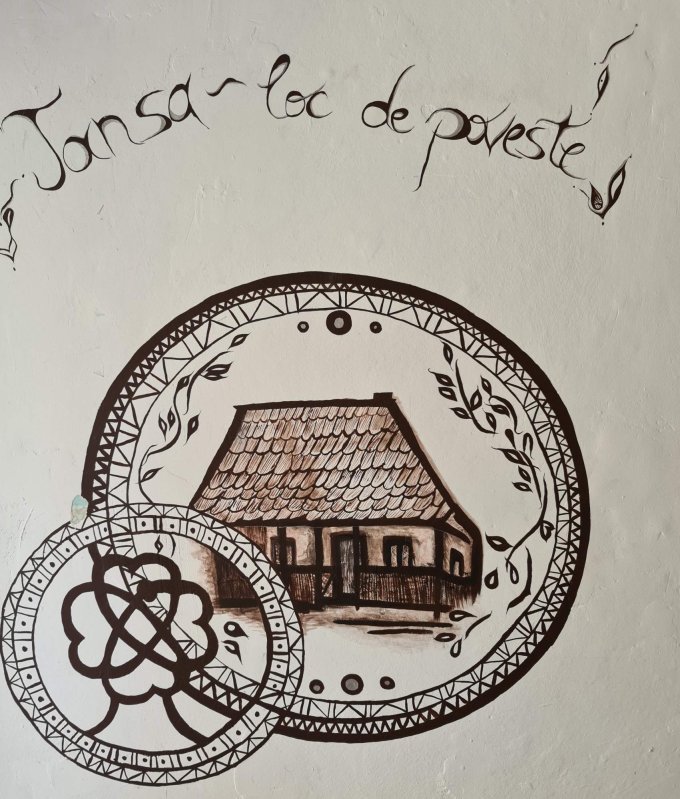 Jansa ~ loc de poveste